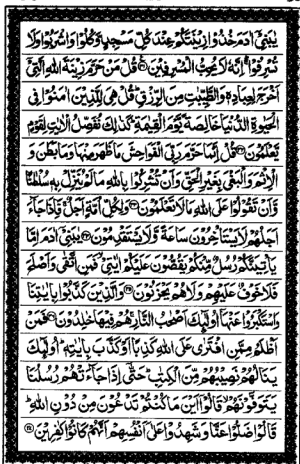 يٰبَنِىْٓ اٰدَمَ خُذُوْا زِيْنَتَكُمْ عِنْدَ كُلِّ مَسْجِدٍ وَّكُلُوْا وَاشْرَبُوْا وَلَا
تُسْرِفُوْا ۚ اِنَّهٗ لَا يُحِبُّ الْمُسْرِفِيْنَ ۝ قُلْ مَنْ حَرَّمَ زِيْنَةَ اللّٰهِ الَّتِىْٓ
اَخْرَجَ لِعِبَادِهٖ وَالطَّيِّبٰتِ مِنَ الرِّزْقِ ؕ قُلْ هِىَ لِلَّذِيْنَ اٰمَنُوْا فِى
الْحَيٰوةِ الدُّنْيَا خَالِصَةً يَّوْمَ الْقِيٰمَةِ ؕ كَذٰلِكَ نُفَصِّلُ الْاٰيٰتِ لِقَوْمٍ
يَّعْلَمُوْنَ ۝ قُلْ اِنَّمَا حَرَّمَ رَبِّىَ الْفَوَاحِشَ مَا ظَهَرَ مِنْهَا وَمَا بَطَنَ وَ
الْاِثْمَ وَالْبَغْىَ بِغَيْرِ الْحَقِّ وَاَنْ تُشْرِكُوْا بِاللّٰهِ مَا لَمْ يُنَزِّلْ بِهٖ سُلْطٰنًا
وَّاَنْ تَقُوْلُوْا عَلَى اللّٰهِ مَا لَا تَعْلَمُوْنَ ۝ وَلِكُلِّ اُمَّةٍ اَجَلٌ ۚ فَاِذَا جَآءَ
اَجَلُهُمْ لَا يَسْتَاْخِرُوْنَ سَاعَةً وَّلَا يَسْتَقْدِمُوْنَ ۝ يٰبَنِىْٓ اٰدَمَ اِمَّا
يَاْتِيَنَّكُمْ رُسُلٌ مِّنْكُمْ يَقُصُّوْنَ عَلَيْكُمْ اٰيٰتِىْ ۙ فَمَنِ اتَّقٰى وَاَصْلَحَ
فَلَا خَوْفٌ عَلَيْهِمْ وَلَا هُمْ يَحْزَنُوْنَ ۝ وَالَّذِيْنَ كَذَّبُوْا بِاٰيٰتِنَا
وَاسْتَكْبَرُوْا عَنْهَآ اُولٰٓئِكَ اَصْحٰبُ النَّارِ ۚ هُمْ فِيْهَا خٰلِدُوْنَ ۝ فَمَنْ
اَظْلَمُ مِمَّنِ افْتَرٰى عَلَى اللّٰهِ كَذِبًا اَوْ كَذَّبَ بِاٰيٰتِهٖ ؕ اُولٰٓئِكَ
يَنَالُهُمْ نَصِيْبُهُمْ مِّنَ الْكِتٰبِ ؕ حَتّٰٓى اِذَا جَآءَتْهُمْ رُسُلُنَا
يَتَوَفَّوْنَهُمْ ۙ قَالُوْٓا اَيْنَ مَا كُنْتُمْ تَدْعُوْنَ مِنْ دُوْنِ اللّٰهِ ؕ
قَالُوْا ضَلُّوْا عَنَّا وَشَهِدُوْا عَلٰٓى اَنْفُسِهِمْ اَنَّهُمْ كَانُوْا كٰفِرِيْنَ ۝